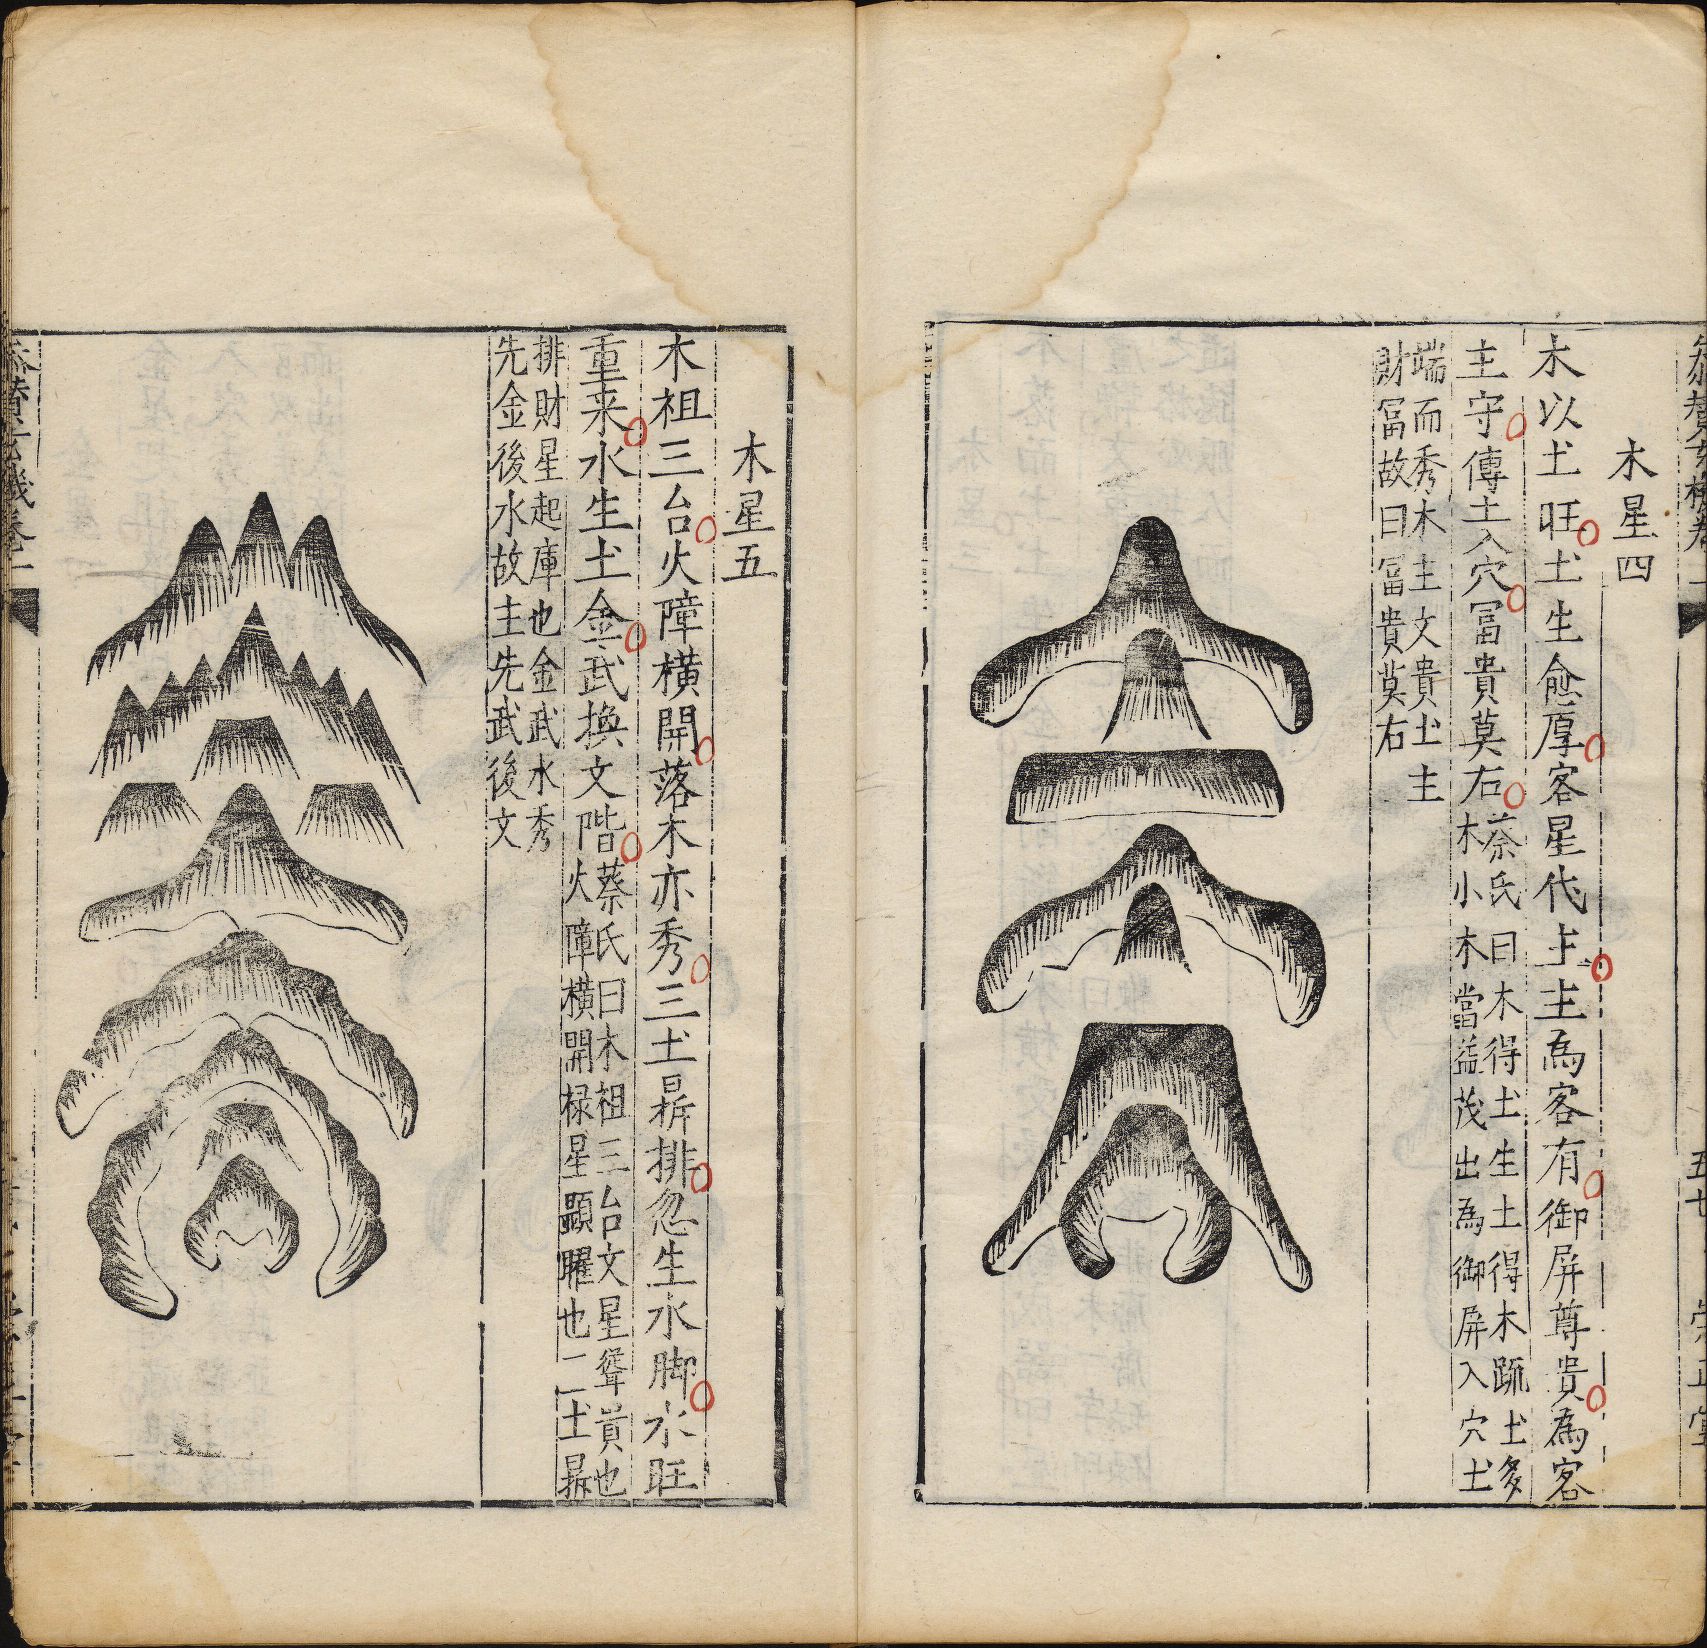 木星四
木以土旺土生愈厚客星代主主為客有御屏尊貴為客
主守傳土入穴冨貴莫右
蔡氏曰木得土生土得木䟽土多
木小木當益茂出為御屏入穴土
端而秀木主文貴土主
財冨故曰冨貴莫右
五七
木星五
木祖三台火障橫開落木亦秀三土昺排忽生水脚水旺
重来水生土金武換文階
蔡氏曰木祖三台文星聳貴也
火障橫開禄星顯曜也二土昺
排財星起庫也金武水秀
先金後水故主先武後文